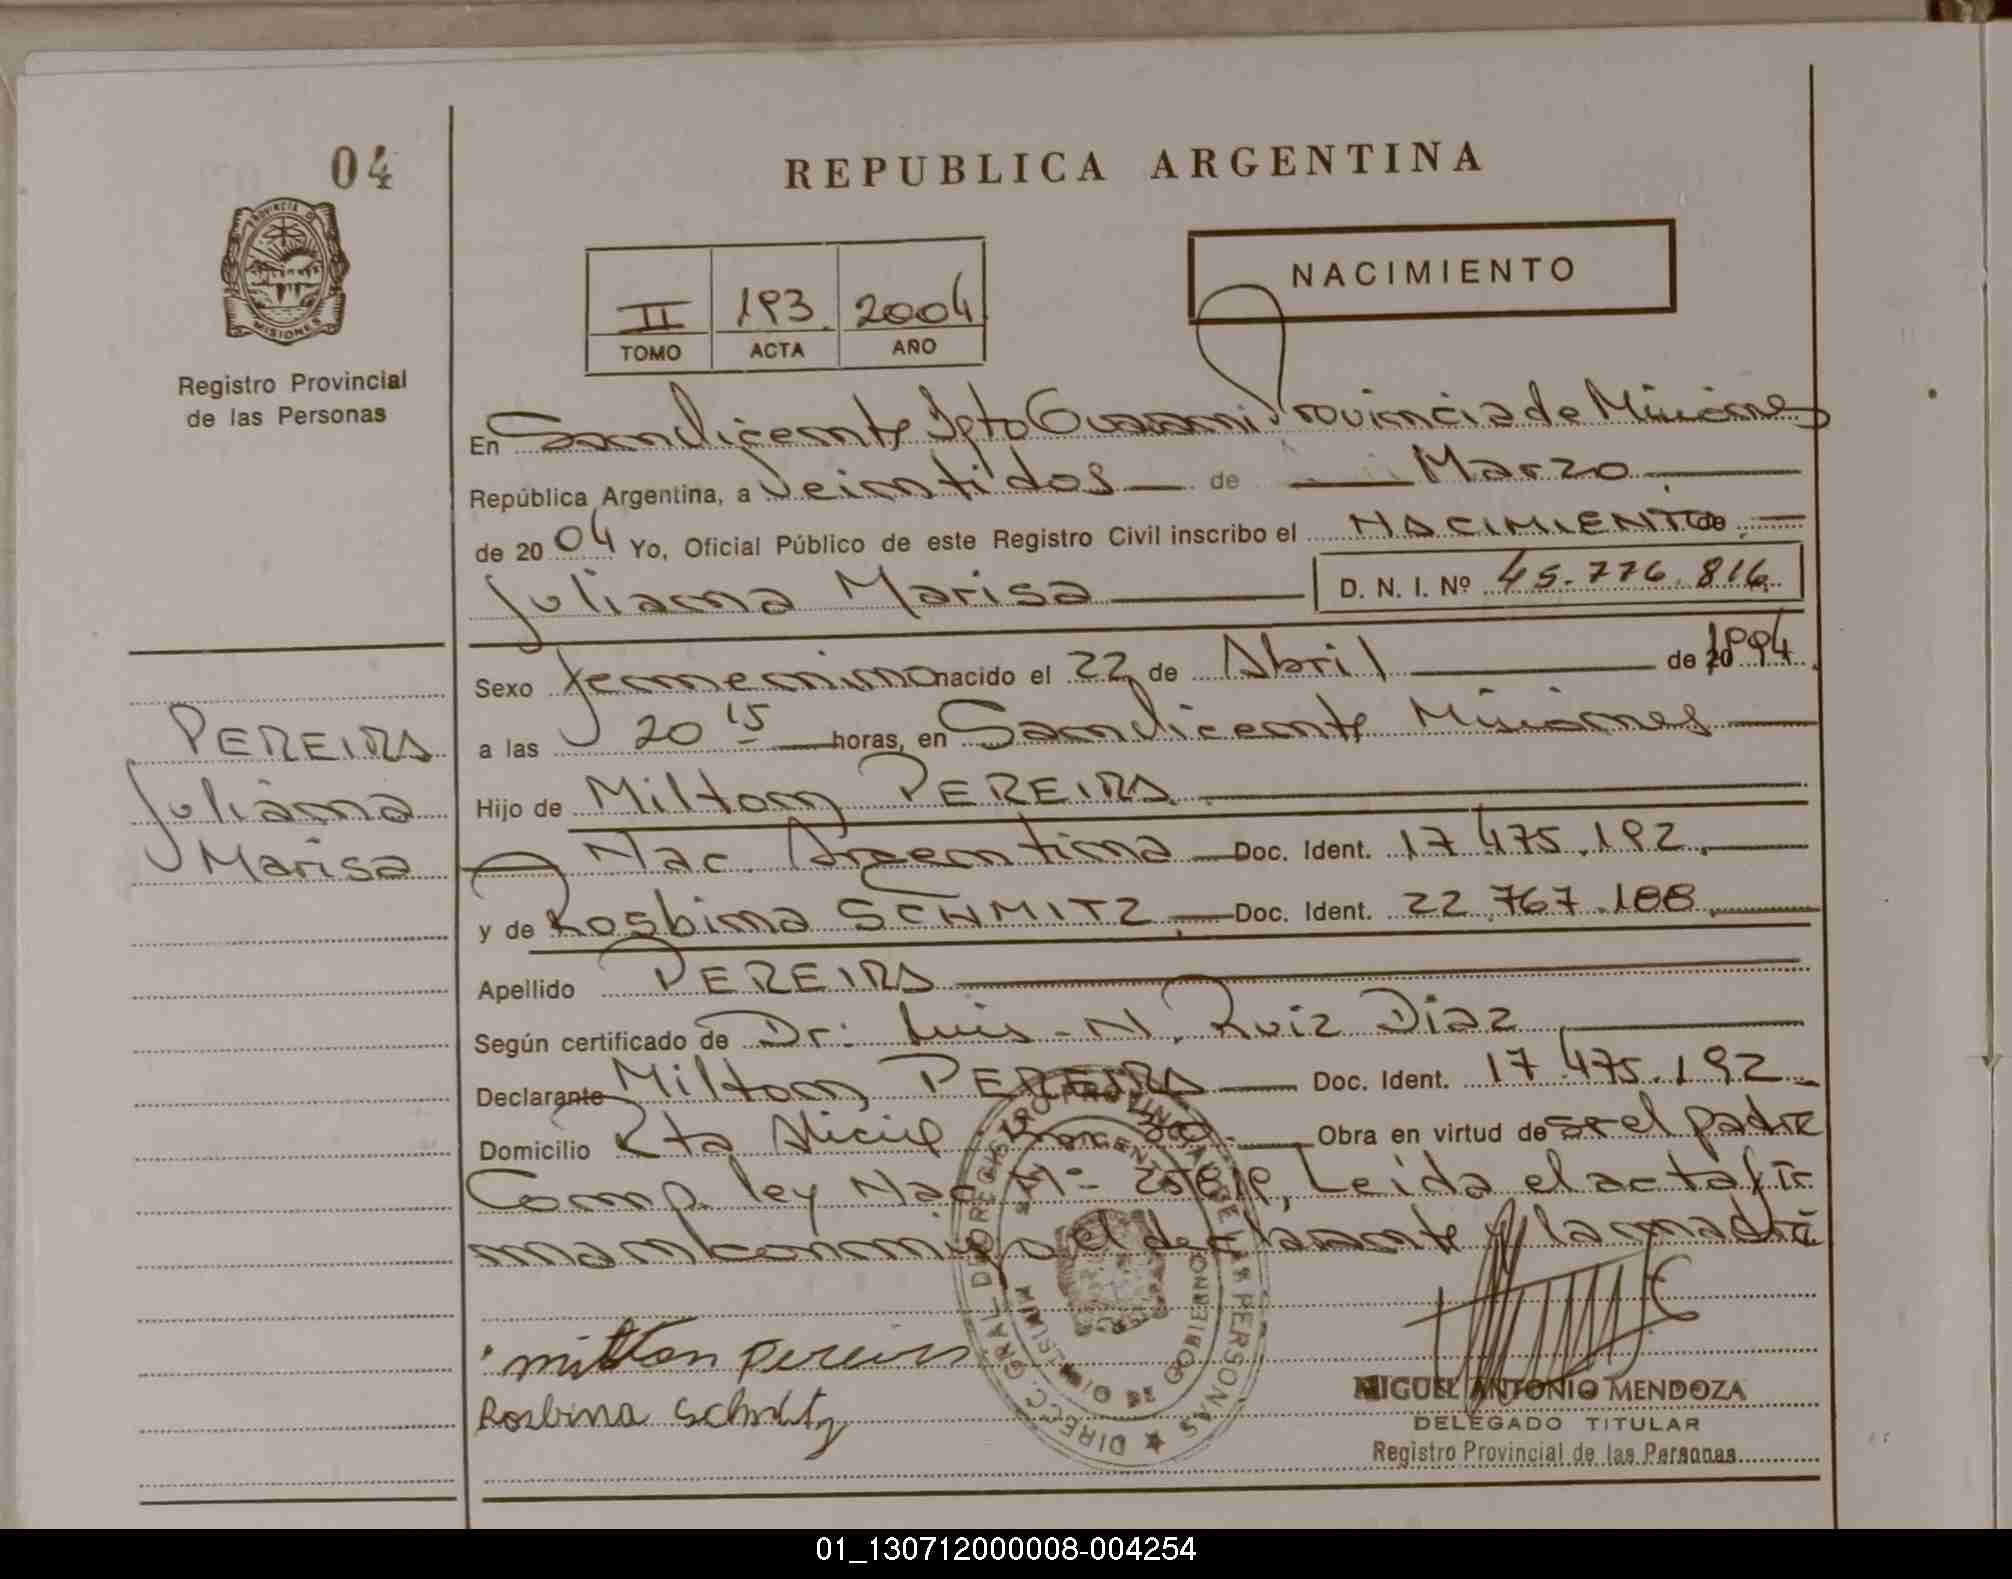 04
REPUBLICA ARGENTINA
PROVINCIA DE
MISIONES
Registro Provincial
de las Personas
NACIMIENTO
II 193 2004
TOMO ACTA AÑO
En San Vicente Dpto Guarani Provincia de Misiones
República Argentina, a Veintidos de Marzo
de 2004 Yo, Oficial Público de este Registro Civil inscribo el NACIMIENTO de
Juliana Marisa D. N. I. Nº 45.776.816
Sexo femenino nacido el 22 de Abril de 1994
PEREIRA
Juliana
Marisa
a las 20 15 horas, en San Vicente Misiones
Hijo de Milton PEREIRA
Nac. Argentina Doc. Ident. 17.475.192
y de Rosbina SCHMITZ Doc. Ident. 22.767.188
Apellido PEREIRA
Según certificado de Dr. Luis N. Ruiz Diaz
Declarante Milton PEREIRA Doc. Ident. 17.475.192
Domicilio Pta Alicia Obra en virtud de ser el padre
Comp. ley Nac Nº Leida el acta fir
man conmigo el declarante y la madre
milton pereira
Rosbina Schmitz
DIREC. GRAL. DEL REGISTRO PROVINCIAL DE LAS PERSONAS
GOBIERNO
MIGUEL ANTONIO MENDOZA
DELEGADO TITULAR
Registro Provincial de las Personas
01_130712000008-004254